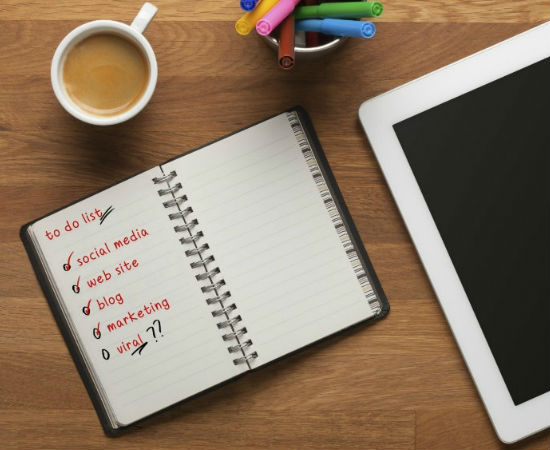 to do list
social media
web site
blog
marketing
viral ??